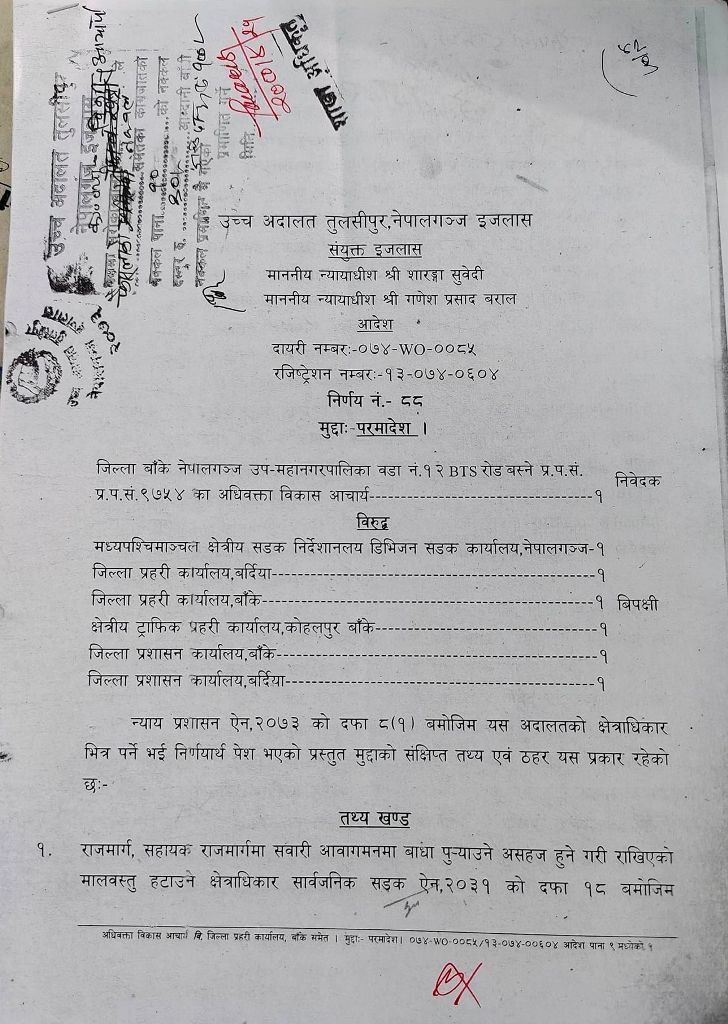 उच्च अदालत तुलसीपुर
नेपालगञ्ज इजलास
उच्च अदालत तुलसीपुर,नेपालगञ्ज इजलास
संयुक्त इजलास
माननीय न्यायाधीश श्री शारङ्गा सुवेदी
माननीय न्यायाधीश श्री गणेश प्रसाद बराल
आदेश
दायरी नम्बरः-०७४-WO-००८५
रजिष्ट्रेशन नम्बरः-१३-०७४-०६०४
निर्णय नं.- ८८
मुद्दाः- परमादेश ।
जिल्ला बाँके नेपालगञ्ज उप-महानगरपालिका वडा नं.१२ BTS रोड बस्ने प्र.प.सं.
प्र.प.सं.९७५४ का अधिवक्ता विकास आचार्य------------------------------१ निवेदक
विरुद्ध
मध्यपश्चिमाञ्चल क्षेत्रीय सडक निर्देशानलय डिभिजन सडक कार्यालय,नेपालगञ्ज-१
जिल्ला प्रहरी कार्यालय,बर्दिया-------------------------------------------१
जिल्ला प्रहरी कार्यालय,बाँके--------------------------------------------१ बिपक्षी
क्षेत्रीय ट्राफिक प्रहरी कार्यालय,कोहलपुर बाँके-----------------------------१
जिल्ला प्रशासन कार्यालय,बाँके------------------------------------------१
जिल्ला प्रशासन कार्यालय,बर्दिया-----------------------------------------१
न्याय प्रशासन ऐन,२०७३ को दफा ८(१) बमोजिम यस अदालतको क्षेत्राधिकार
भित्र पर्ने भई निर्णयार्थ पेश भएको प्रस्तुत मुद्दाको संक्षिप्त तथ्य एवं ठहर यस प्रकार रहेको
छः-
तथ्य खण्ड
१. राजमार्ग, सहायक राजमार्गमा सवारी आवागमनमा बाधा पुऱ्याउने असहज हुने गरी राखिएको
मालवस्तु हटाउने क्षेत्राधिकार सार्वजनिक सडक ऐन,२०३१ को दफा १८ बमोजिम
अधिवक्ता विकास आचार्य वि. जिल्ला प्रहरी कार्यालय, बाँके समेत । मुद्दाः- परमादेश। ०७४-WO-००८५/१३-०७४-००६०४ आदेश पाना ९ मध्येको १